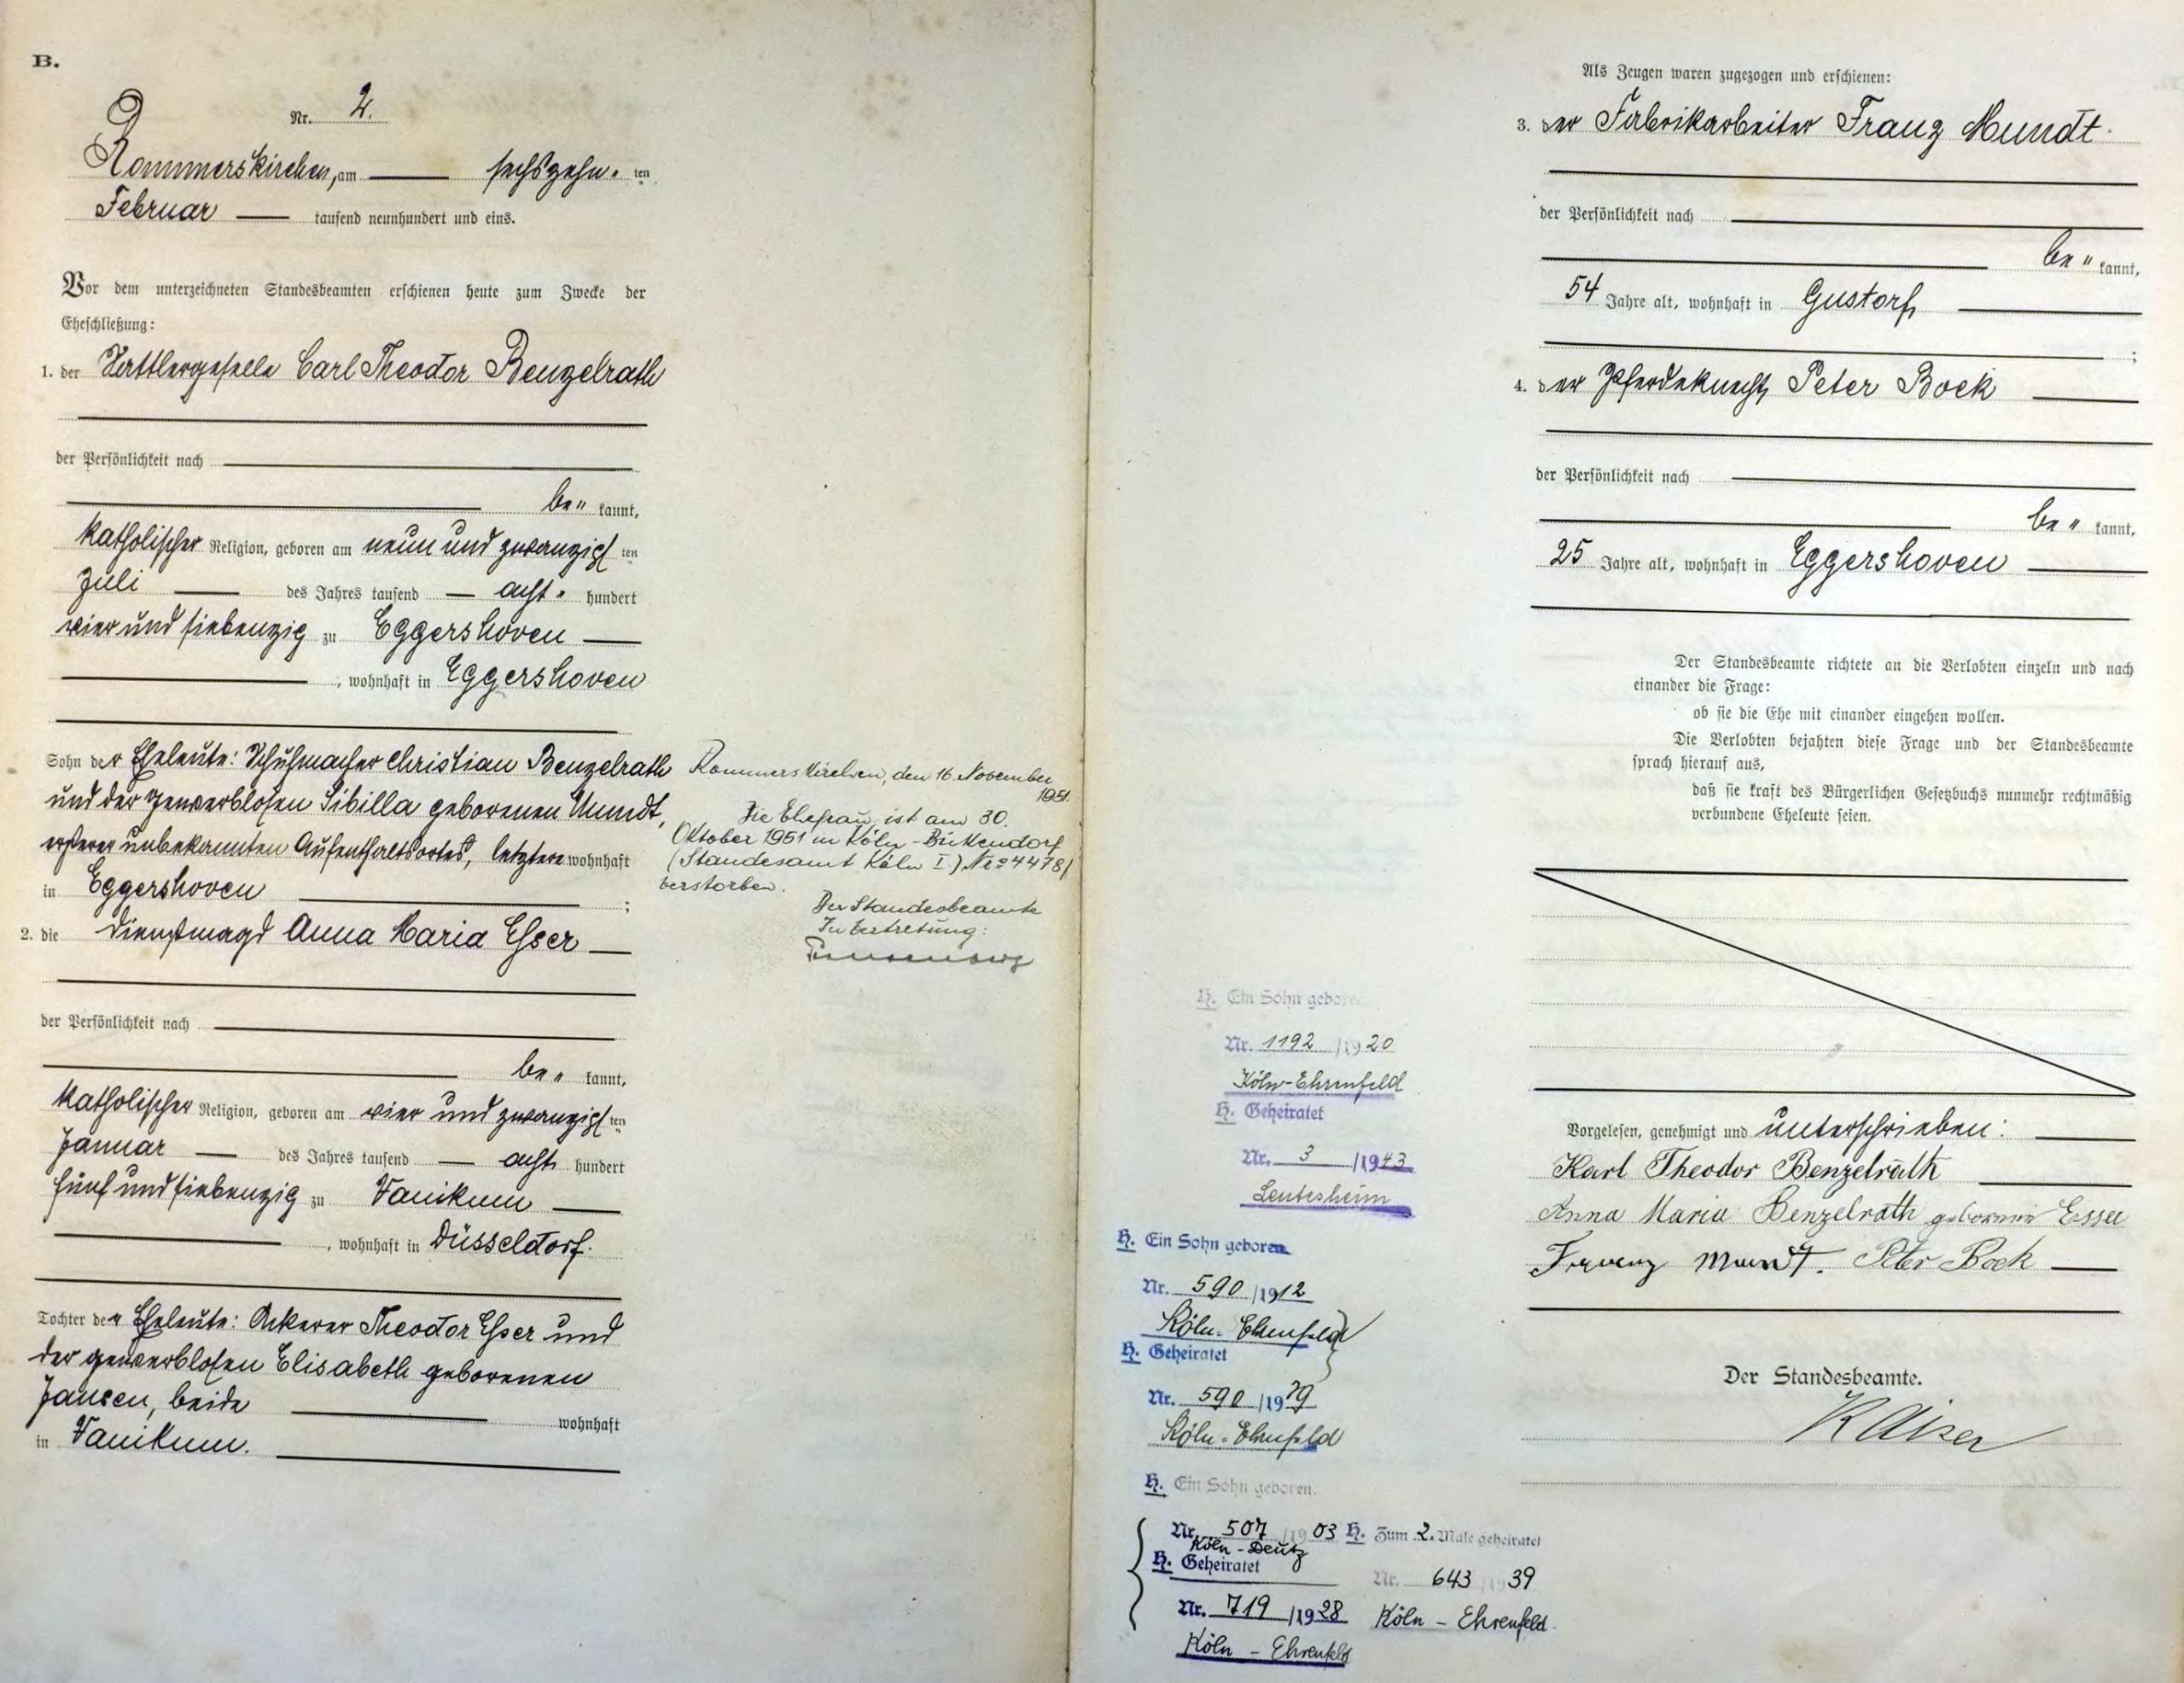 B.
Nr. 2.
Rommerskirchen, am sechszehn ten
Februar tausend neunhundert und eins.
Vor dem unterzeichneten Standesbeamten erschienen heute zum Zwecke der
Eheschließung:
1. der Sattlergeselle Carl Theodor Benzelrath
der Persönlichkeit nach
be kannt,
katholischer Religion, geboren am neun und zwanzigsten
Juli des Jahres tausend acht hundert
vier und siebenzig zu Eggershoven
, wohnhaft in Eggershoven
Sohn der Eheleute: Schuhmacher Christian Benzelrath
und der gewerblosen Sibilla geborenen Mundt,
ersterer unbekannten Aufenthaltsortes, letztere wohnhaft
in Eggershoven ;
2. die Dienstmagd Anna Maria Esser
der Persönlichkeit nach
be kannt,
katholischer Religion, geboren am vier und zwanzigsten
Januar des Jahres tausend acht hundert
fünf und siebenzig zu Vanikum
, wohnhaft in Düsseldorf.
Tochter der Eheleute: Ackerer Theodor Esser und
der gewerblosen Elisabeth geborenen
Jansen, beide wohnhaft
in Vanikum.
Rommerskirchen, den 16. November
1951.
Die Ehefrau ist am 30.
Oktober 1951 in Köln-Bickendorf
(Standesamt Köln I) No 4478)
verstorben.
Der Standesbeamte
In Vertretung:
H. Ein Sohn geboren
Nr. 1192 /1920
Köln-Ehrenfeld
H. Geheiratet
Nr. 3 /1943
Leutesheim
H. Ein Sohn geboren
Nr. 590 /1912
Köln-Ehrenfeld
H. Geheiratet
Nr. 590 /1939
Köln-Ehrenfeld
H. Ein Sohn geboren.
Nr. 507 /1903
Köln-Deutz
H. Geheiratet
Nr. 719 /1928
Köln - Ehrenfeld
H. Zum 2. Male geheiratet
Nr. 643 /1939
Köln - Ehrenfeld.
Als Zeugen waren zugezogen und erschienen:
3. der Fabrikarbeiter Franz Mundt
der Persönlichkeit nach
be kannt,
54 Jahre alt, wohnhaft in Gustorf
;
4. der Pferdeknecht Peter Bock
der Persönlichkeit nach
be kannt,
25 Jahre alt, wohnhaft in Eggershoven
Der Standesbeamte richtete an die Verlobten einzeln und nach
einander die Frage:
ob sie die Ehe mit einander eingehen wollen.
Die Verlobten bejahten diese Frage und der Standesbeamte
sprach hierauf aus,
daß sie kraft des Bürgerlichen Gesetzbuchs nunmehr rechtmäßig
verbundene Eheleute seien.
Vorgelesen, genehmigt und unterschrieben:
Karl Theodor Benzelrath
Anna Maria Benzelrath geborene Esser
Franz Mundt. Peter Bock
Der Standesbeamte.
Kaiser